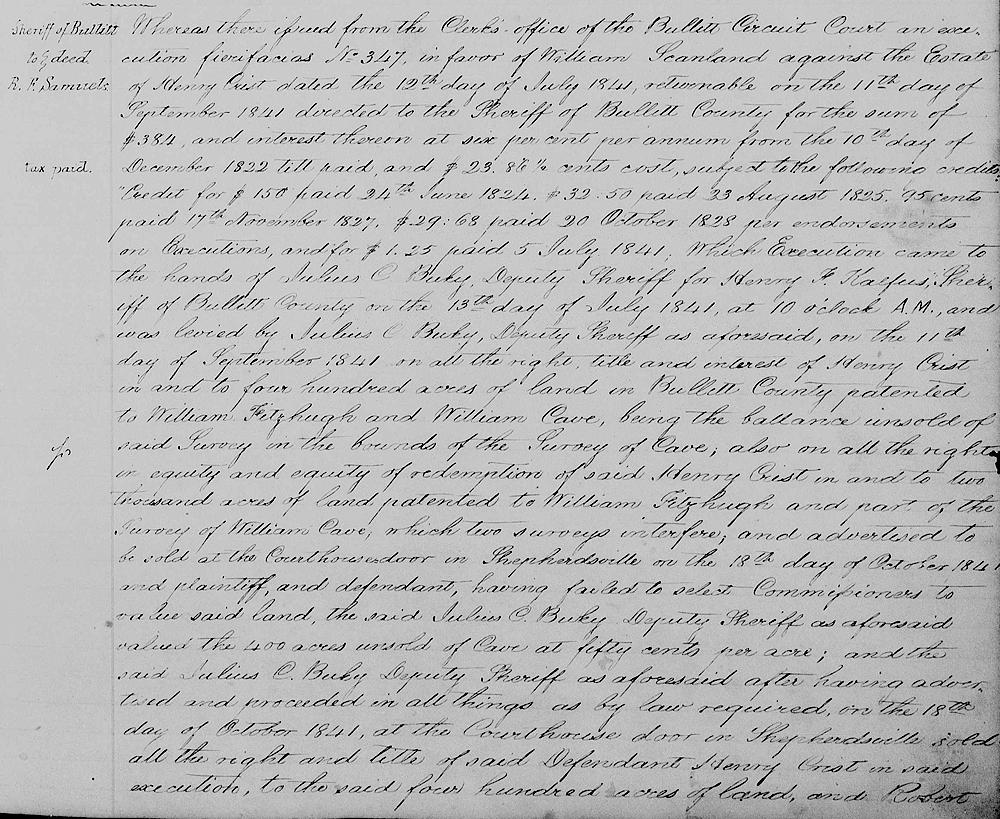 Sheriff of Bullitt
to } deed.
R. F. Samuels
tax paid.
Whereas there issued from the Clerks office of the Bullitt Circuit Court an exe-
cution fierifacias No 347, in favor of William Scanland against the Estate
of Henry Crist dated the 12th day of July 1841, returnable on the 11th day of
September 1841 directed to the Sheriff of Bullitt County for the sum of
$384, and interest thereon at six per cent per annum from the 10th day of
December 1822 till paid, and $23.86½ cents cost, subject to the following credits,
"Credit for $150 paid 24th June 1824. $32:50 paid 23 August 1825. 95 cents
paid 17th November 1827, $29:68 paid 20 October 1828 per endorsements
on Executions, and for $1.25 paid 5 July 1841, Which Execution came to
the hands of Julius C. Buky, Deputy Sheriff for Henry F. Kalfus, Sher-
iff of Bullitt County on the 13th day of July 1841, at 10 o'clock A.M., and
was levied by Julius C Buky, Deputy Sheriff as aforesaid, on the 11th
day of September 1841 on all the right, title and interest of Henry Crist
in and to four hundred acres of land in Bullitt County patented
to William Fitzhugh and William Cave, being the ballance unsold of
said Survey in the bounds of the Survey of Cave; also on all the right
in equity and equity of redemption of said Henry Crist in and to two
thousand acres of land patented to William Fitzhugh and part of the
Survey of William Cave, which two surveys interfere; and advertised to
be sold at the Courthouse door in Shepherdsville on the 18th day of October 1841
and plaintiff, and defendant, having failed to select Commissioners to
value said land, the said Julius C. Buky Deputy Sheriff as aforesaid
valued the 400 acres unsold of Cave at fifty cents per acre; and the
said Julius C. Buky Deputy Sheriff as aforesaid after having adver-
tised and proceeded in all things as by law required, on the 18th
day of October 1841, at the Courthouse door in Shepherdsville sold
all the right and title of said Defendant Henry Crist in said
execution, to the said four hundred acres of land, and Robert